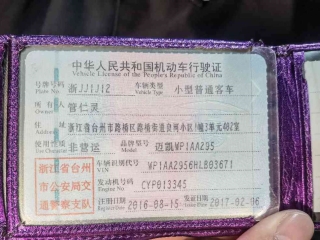 中华人民共和国机动车行驶证
Vehicle License of the People's Republic of China
号牌号码 浙JJ1J12 车辆类型 小型普通客车
Plate No. Vehicle Type
所有人 管仁灵
Owner
住址 浙江省台州市路桥区路桥街道良河小区1幢3单元402室
使用性质 非营运 品牌型号 迈凯WP1AA295
浙江省台州 车辆识别代号 WP1AA2956HLB03671
VIN
市公安局交 发动机号码 CYP013345
通警察支队 注册日期 2016-08-15 发证日期 2017-02-06